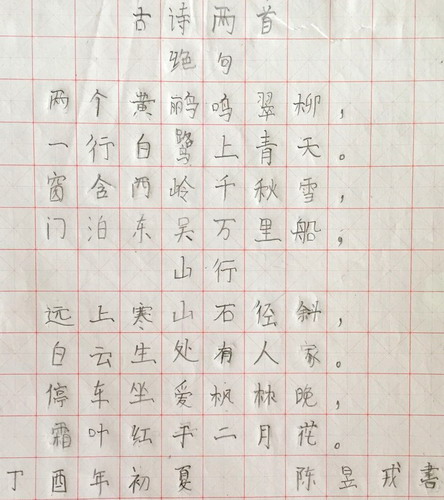 古诗两首
绝句
两个黄鹂鸣翠柳，
一行白鹭上青天。
窗含西岭千秋雪，
门泊东吴万里船；
山行
远上寒山石径斜，
白云生处有人家。
停车坐爱枫林晚，
霜叶红于二月花。
丁酉年初夏 陈昱戎書